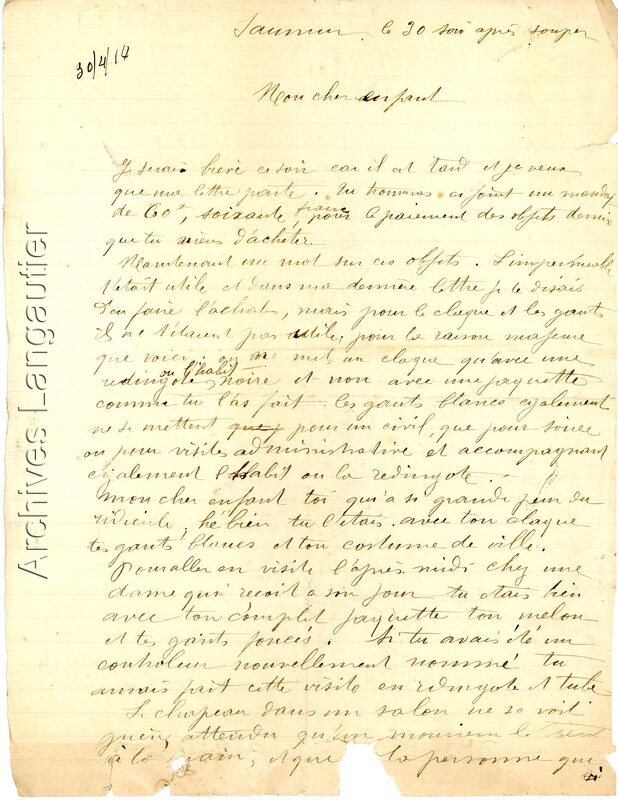 Saumur, le 30 soir après souper
30/4/14
Mon cher enfant
Je serai brève ce soir car il est tard et je veux
que ma lettre parte. Tu trouveras ci joint un mandat
de 60f, soixante francs, pour le paiement des objets
que tu viens d'acheter
Maintenant un mot sur ces objets. L'imperméable
t'était utile et dans ma dernière lettre je te disais
d'en faire l'achat, mais pour le claque et les gants
ils ne t'étaient pas utile, pour la raison majeure
que voici: on ne met un claque qu'avec une
redingote ou l'habit noire et non avec une jaquette
comme tu l'as fait. Les gants blancs également
ne se mettent que, pour un civil, que pour soirée
ou pour visites administrative et accompagnant
également l'Habit ou la redingote.
Mon cher enfant toi qui a si grande peur du
ridicule, hé bien tu l'étais avec ton claque
tes gants blancs et ton costume de ville.
Pour aller en visite l'après midi chez une
dame qui reçoit a son jour tu étais bien
avec ton complet jaquette ton melon
et tes gants foncés. Si tu avais été un
controleur nouvellement nommé tu
aurais fait cette visite en redingote et tube
Le chapeau dans un salon ne se voit
guère, attendu qu'un monsieur le tient
à la main, et que la personne qui
Archives Langautier